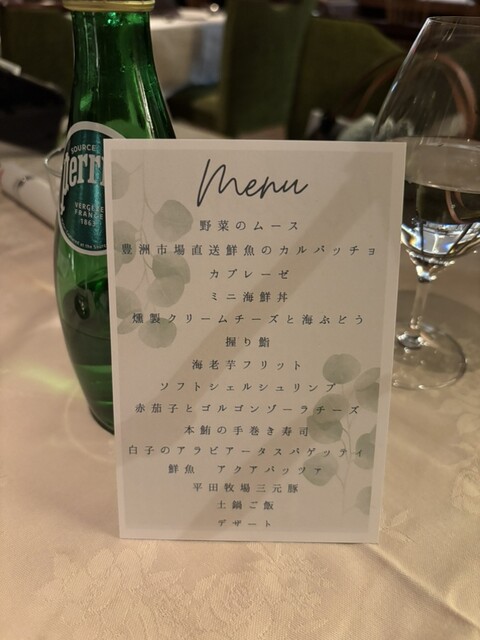 SOURCE
Perri
VERGÈZE
FRANCE
Menu
野菜のムース
豊洲市場直送鮮魚のカルパッチョ
カプレーゼ
ミニ海鮮丼
燻製クリームチーズと海ぶどう
握り鮨
海老芋フリット
ソフトシェルシュリンプ
赤茄子とゴルゴンゾーラチーズ
本鮪の手巻き寿司
白子のアラビアータスパゲッティ
鮮魚 アクアパッツァ
平田牧場三元豚
土鍋ご飯
デザート